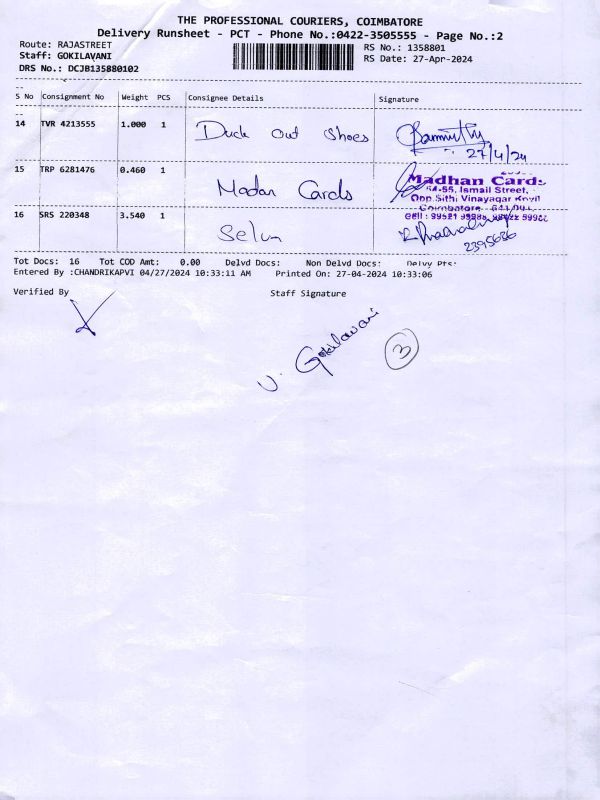 THE PROFESSIONAL COURIERS, COIMBATORE
Delivery Runsheet - PCT - Phone No.:0422-3505555 - Page No.:2
Route: RAJASTREET
Staff: GOKILAVANI
DRS No.: DCJB135880102
RS No.: 1358801
RS Date: 27-Apr-2024
S No Consignment No Weight PCS Consignee Details Signature
14 TVR 4213555 1.000 1 Duck out shoes
27/4/24
15 TRP 6281476 0.460 1 Madan Cards
Madhan Cards
54-55, Ismail Street,
Opp.Sithi Vinayagar Kovil
Coimbatore
16 SRS 220348 3.540 1 Selva
2395686
Tot Docs: 16 Tot COD Amt: 0.00 Delvd Docs: Non Delvd Docs: Delvy Pts:
Entered By :CHANDRIKAPVI 04/27/2024 10:33:11 AM Printed On: 27-04-2024 10:33:06
Verified By Staff Signature
V. Gokilavani
3